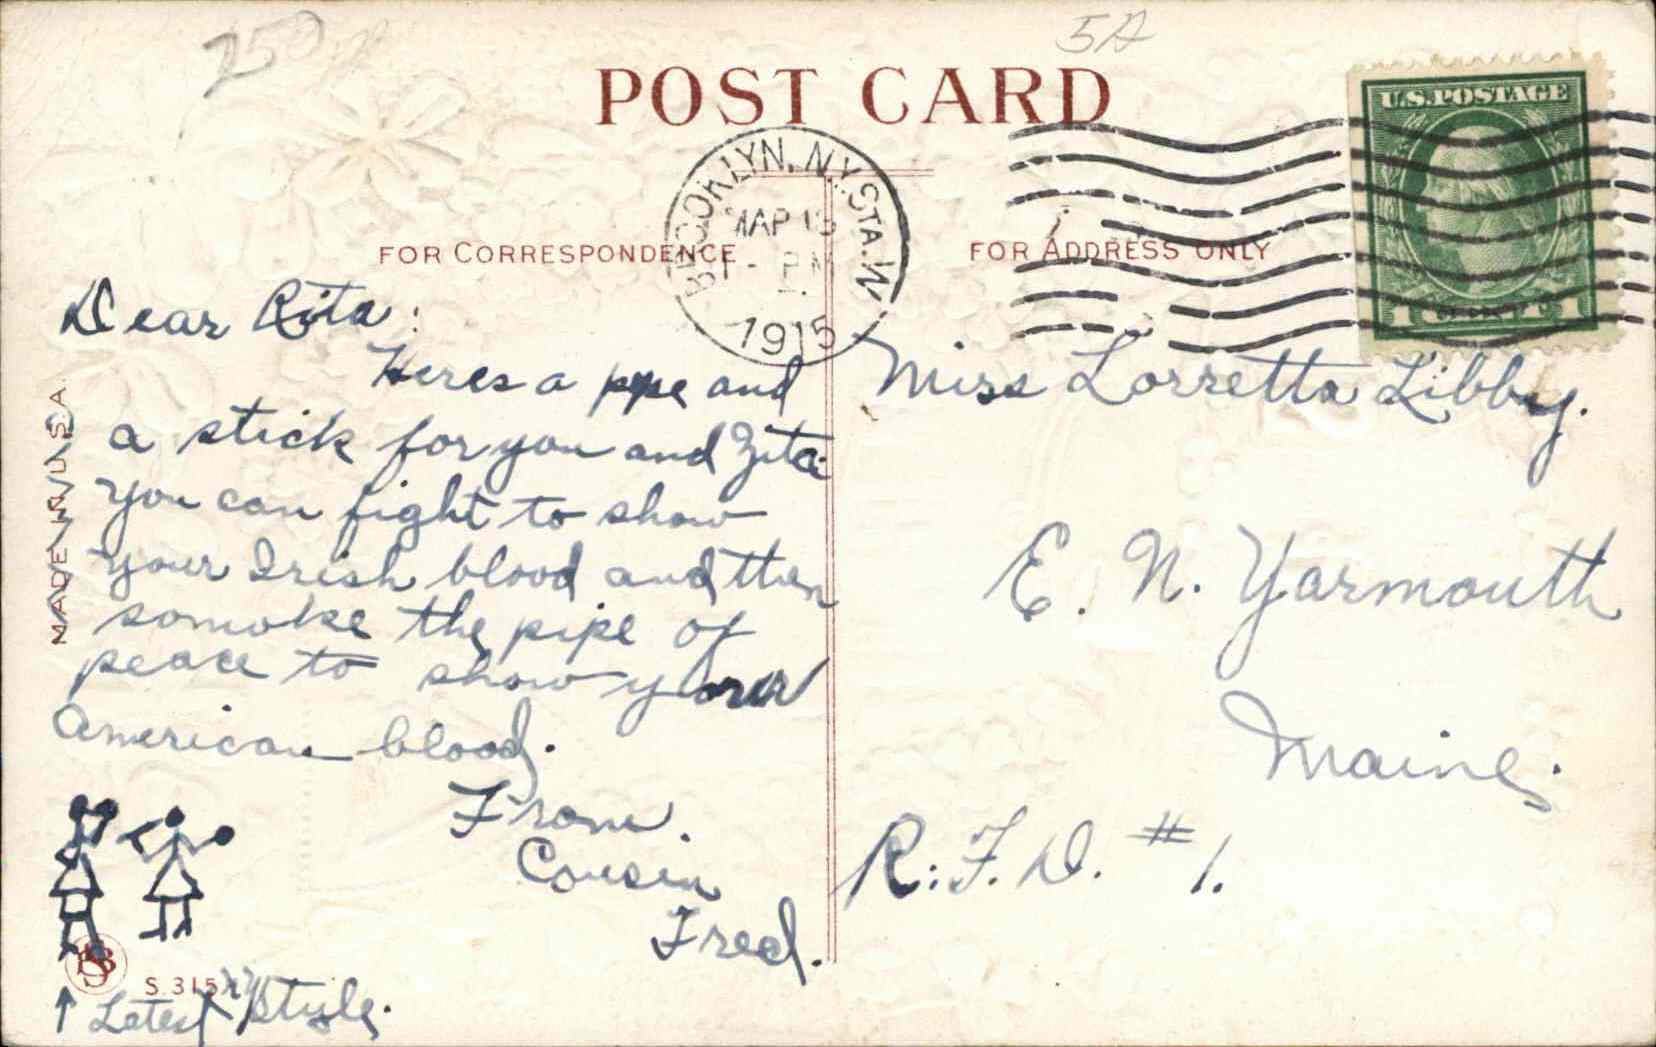 5A
POST CARD
U.S.POSTAGE
BROOKLYN, N.Y. STA. W
MAR
PM
1915
FOR CORRESPONDENCE
FOR ADDRESS ONLY
Dear Rita:
Heres a pipe and
a stick for you and Zita
You can fight to show
your Irish blood and then
somoke the pipe of
peace to show your
American blood.
From.
Cousin
Fred.
↑ Latest NY Style.
MADE IN U.S.A.
S. 315
Miss Lorretta Libby.
E. N. Yarmouth
Maine.
R.F.D. #1.